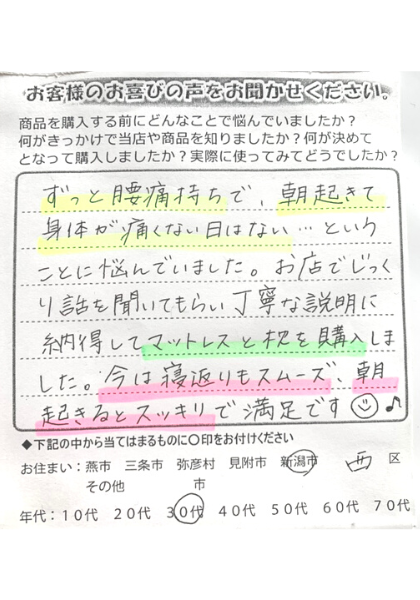 お客様のお喜びの声をお聞かせください。
商品を購入する前にどんなことで悩んでいましたか？
何がきっかけで当店や商品を知りましたか？何が決めて
となって購入しましたか？実際に使ってみてどうでしたか？
ずっと腰痛持ちで、朝起きて
身体が痛くない日はない…という
ことに悩んでいました。お店でじっく
り話を聞いてもらい丁寧な説明に
納得してマットレスと枕を購入しま
した。今は寝返りもスムーズ、朝
起きるとスッキリで満足です☺♪
◆下記の中から当てはまるものに〇印をお付けください
お住まい：燕市 三条市 弥彦村 見附市 新潟市 西 区
その他 市
年代：10代 20代 30代 40代 50代 60代 70代